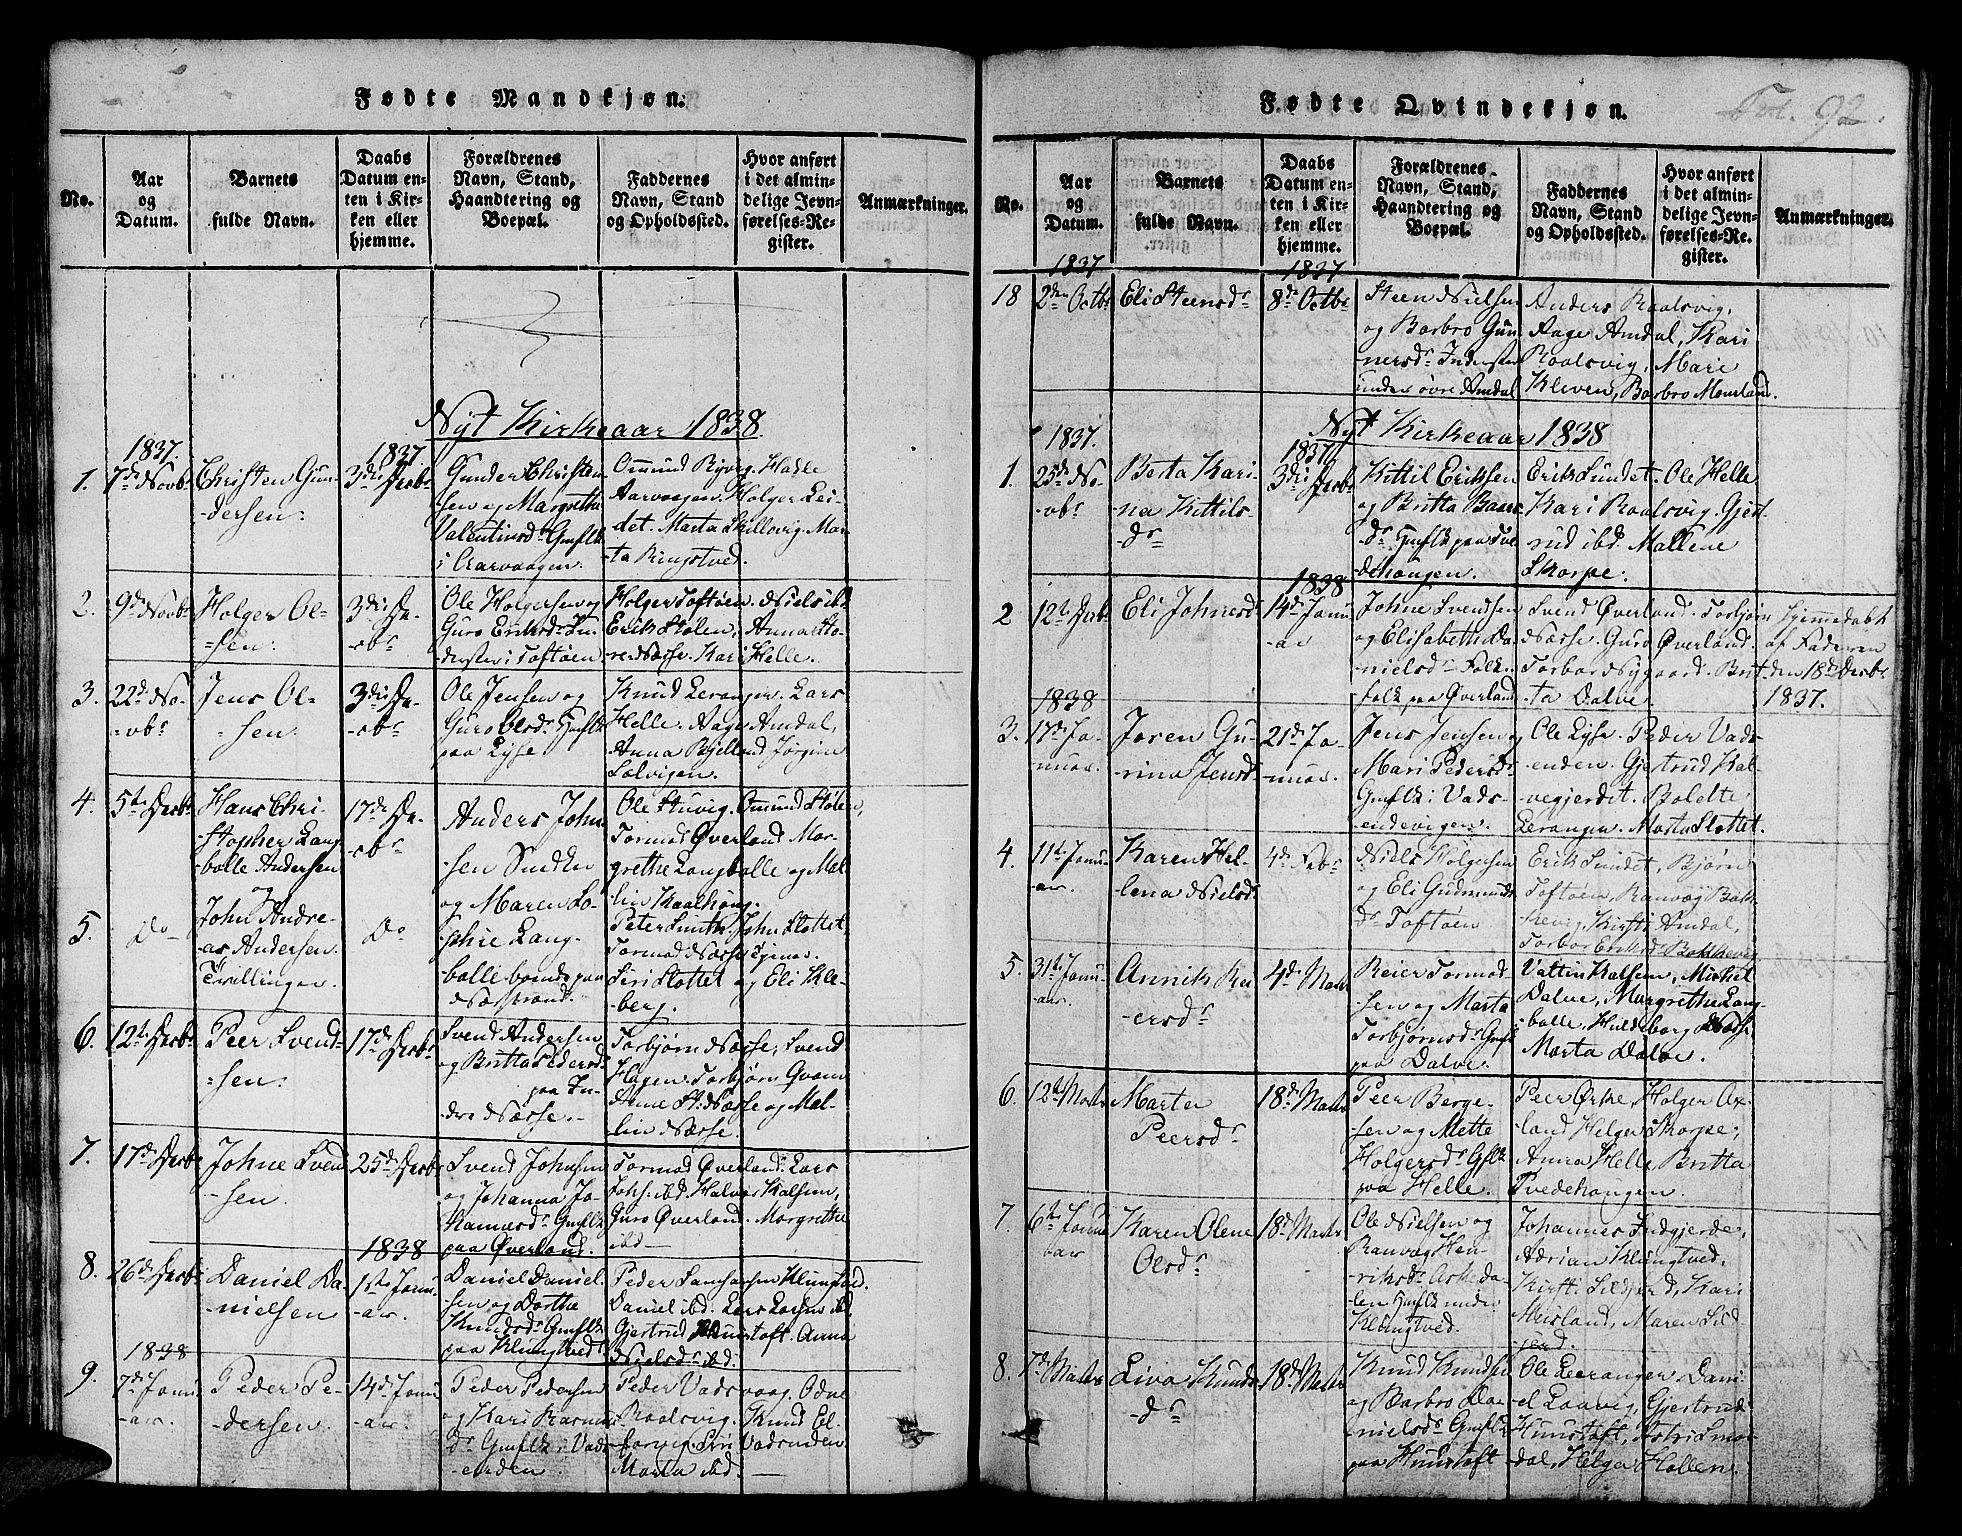 Fødte Mandkjøn.
No.
Aar
og
Datum.
Barnets
fulde Navn.
Daabs
Datum en-
ten i Kir-
ken eller
hjemme.
Forældrenes
Navn, Stand,
Haandtering og
Boepæl.
Faddernes
Navn, Stand
og Opholdssted.
Hvor anført
i det almin-
delige Jevn-
førelses-Re-
gister.
Anmærkninger.
Nyt Kirkeaar 1838.
1837.
1837
1.
7de Novbr
Christen Gun-
-dersen.
3die Decbr
Gunder Christen-
sen og Margrethe
Valentinsdr Gmflk
i Aarvaagen.
Omund Ryvig. Hadle
Aarvaagen. Holger Lei-
det. Marta Skillevig Mar-
-ta Ringstved.
2.
9de Novbr
Holger Ol-
-sen.
3die De-
-cbr
Ole Holgersen og
Guro Eriksdr In-
derster i Toftøen
Holger Toftøen. Niels ib.
Erik Stølen, Anna Sto-
re Næsse. Kari Helle.
3.
22de No-
-vbr
Jens Ol-
-sen.
3die De-
-cbr
Ole Jensen og
Guro Olsdr Gmflk
paa Lyse
Knud Leranger. Lars
Helle. Aage Amdal,
Anna Bjelland Jørgine
Solvigen.
4.
5te Decbr
Hans Chri-
-stopher Lang-
-balle Andersen
17de De-
-cbr
Anders John-
sen Smdken
og Maren So-
-phie Lang-
balle boende paa
Næsstrand.
Ole Stuvig. Omund Stølen,
Tormod Øverland Mar-
grethe Langballe og Mal-
lin Kaalhoug.
5.
Do
John Andre-
-as Andersen.
Tvillinger.
Do
Peter Smith. John Slottet,
Tormod Næsse
Siri Slottet og Eli Kle-
berg.
6.
12te Decbr
Peer Svend-
-sen.
17de Decbr
Svend Andersen
og Britta Pedersdr
paa In-
dre Næsse.
Torbjørn Næsse, Svend
Hagen. Torbjørn Gvam
Anne St: Næsse og Mal-
lin Næsse.
7.
17de Decbr
Johne Svend
-sen.
25de Decbr
Svend Johnsen
og Johanna Jo-
hannesdr Gmflk
paa Øverland.
Tormod Øverland. Lars
Johs. ibd. Halvor Kalsem,
Guro Øverland, Margrethe
ibd
1838
8.
26de Decbr
Daniel Da-
-nielsen
1ste Janu-
-ar.
Daniel Daniel-
sen og Dorthe
Knudsdr Gmflk
paa Klungtved.
Peder Samsonsen Klungtved.
Daniel ibd. Lars Larsen ibd.
Gjertrud Hunstoft. Anna
Nielsdr ibd.
1838
9.
7de Janu
-ar.
Peder Pe-
dersen.
14de Janu
-ar.
Peder Pedersen
og Kari Rasmus
dr Gmflk i Vads
enden.
Peder Vadsvaag. Odne
Roalsvig. Knud El-
Siri Vadsenden
Marta ibd.
Fødte Qvindekjøn.
Fol. 92.
No.
Aar
og
Datum.
Barnets
fulde Navn.
Daabs
Datum en-
ten i Kir-
ken eller
hjemme.
Forældrenes
Navn, Stand,
Haandtering og
Boepæl.
Faddernes
Navn, Stand
og Opholdssted.
Hvor anført
i det almin-
delige Jevn-
førelses-Re-
gister.
Anmærkninger.
1837
1837
18
2den Octbr
Eli Steensdr
8de Octbr
Steen Nielsen
og Barbro Gun-
-nersdr Inderster
under øvre Amdal
Anders Roalsvig,
Aage Amdal, Kari
Roalsvig, Mari
Kleven, Barbro Mousland.
Nyt Kirkeaar 1838
1837.
1837
1.
25de No-
-vbr
Berta Kari-
na Kittils-
-dr
3die Decbr
Kittil Eriksen
og Britta Baar-
dr Gmflk paa Tve
dehougen.
Erik Sundet. Ole Helle
Kari Roalsvig. Gjert-
rud ibd. Mallene
Skorpe.
1838
2
12te Decbr
Eli Johnesdr
14de Janu
-ar
Johne Svendsen
og Elisabeth Da-
nielsdr Folk-
folk paa Øverland
Svend Øverland. Torbjørn
Næsse. Guro Øverland.
Torbor Nygaard. Brit-
ta Dalve.
Hjemmedøbt
af Faderen
den 18de Decbr
1837.
1838
3.
17de Ja-
nuar.
Joren Gu-
rina Jensdr
21de Ja-
-nuar.
Jens Jensen og
Mari Pedersdr
Gmflk i Vads-
endevigen.
Ole Lyse. Peder Vads-
-enden. Gjertrud Kal-
-vegjerdet. Bolette
Leranger. Marta Slottet.
4.
11te Janu-
-ar.
Karen Hel-
-lena Nielsdr
4de Febr
Niels Holgersen
og Eli Gudmunds
dr Toftøen
Erik Sundet, Bjørn
Toftøen, Ranvæg Bak-
kevig, Kirsti Amdal,
Torbor Eriksd Bakkevig
5.
31te Janu-
ar.
Annik Rei-
-ersdr
4de Marts
Reier Tormod-
sen og Marta
Torbjørnsdr Gmfl
paa Dalve.
Vattin Kalsem, Mickel
Dalve, Margrethe Lang-
balle, Hildeborg Næsse
Marta Dalve.
6.
12te Marts
Marta
Peersdr
18de Marts
Peer Berge-
sen og Mette
Holgersdr Gflk
paa Helle.
Peer Ørke, Holger Ax-
land Helge Skorpe,
Anna Helle, Britta
Tvedehougen.
7.
6te Janu
ar
Karen Olene
Olsdr
18de Marts
Ole Nielsen og
Ranvæg Hen-
riksdr Askeda-
len Gmflk under
Klungtved.
Johannes Indgjerde,
Adrian Klungtved,
Kirsti Sildjerd, Kari
Musland, Maren Sild
jerd.
8.
7de Marts
Liva Knuds
-dr
18de Marts
Knud Knudsen
og Barbro Da-
nielsdr Gmflk
paa Hunstoft
Ole Leeranger, Dani-
el Laavig, Gjertrud
Hunstoft, Astri Lmo-
dal, Helga Hollen.